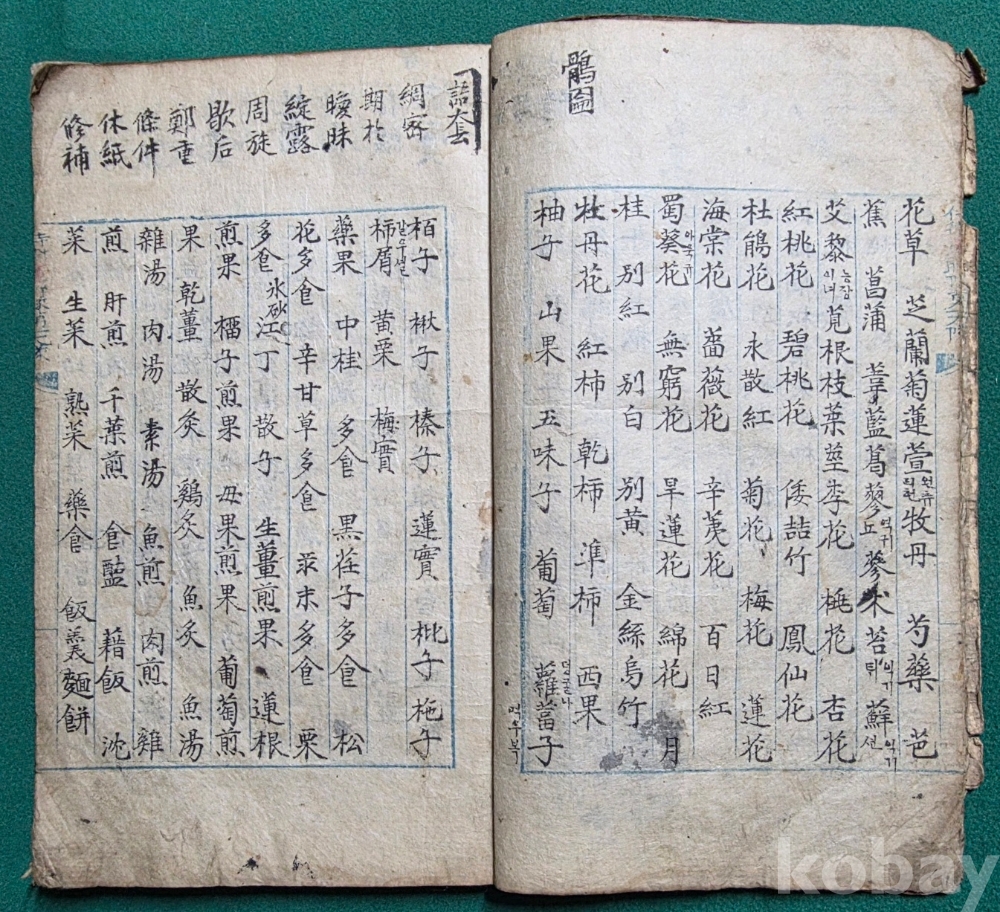 鵑圖
花草 芝蘭菊蓮萱牧丹 芍藥 芭
蕉 菖蒲 葦藍葛蓼 蔘朮苔蘇
艾藜莧根枝葉莖李花 桃花 杏花
紅桃花 碧桃花 倭詰竹 鳳仙花
杜鵑花 永散紅 菊花 梅花 蓮花
海棠花 薔薇花 辛荑花 百日紅
蜀葵花 無窮花 旱蓮花 綿花 月
桂 別紅 別白 別黃 金絲烏竹
牡丹花 紅柿 乾柿 準柿 西果
柚子 山果 五味子 葡萄 蘿當子
머우부
語套
綢密
期於
曖昧
綻露
周旋
歇后
鄭重
條件
休紙
修補
栢子 楸子 榛子 蓮實 枇子 柂子
柿屑 黃栗 梅實
藥果 中桂 多食 黑荏子多食 松
花多食 辛甘草多食 末多食 栗
多食 氷砂 江丁 散子 生薑煎果 蓮根
煎果 榴子煎果 毋果煎果 葡萄煎
果 乾薑 散炙 鷄炙 魚炙 魚湯
雜湯 肉湯 素湯 魚煎 肉煎 雜
煎 肝煎 千葉煎 食醢 藉飯 沈
菜 生菜 熟菜 藥食 飯羹麵餠
kobay